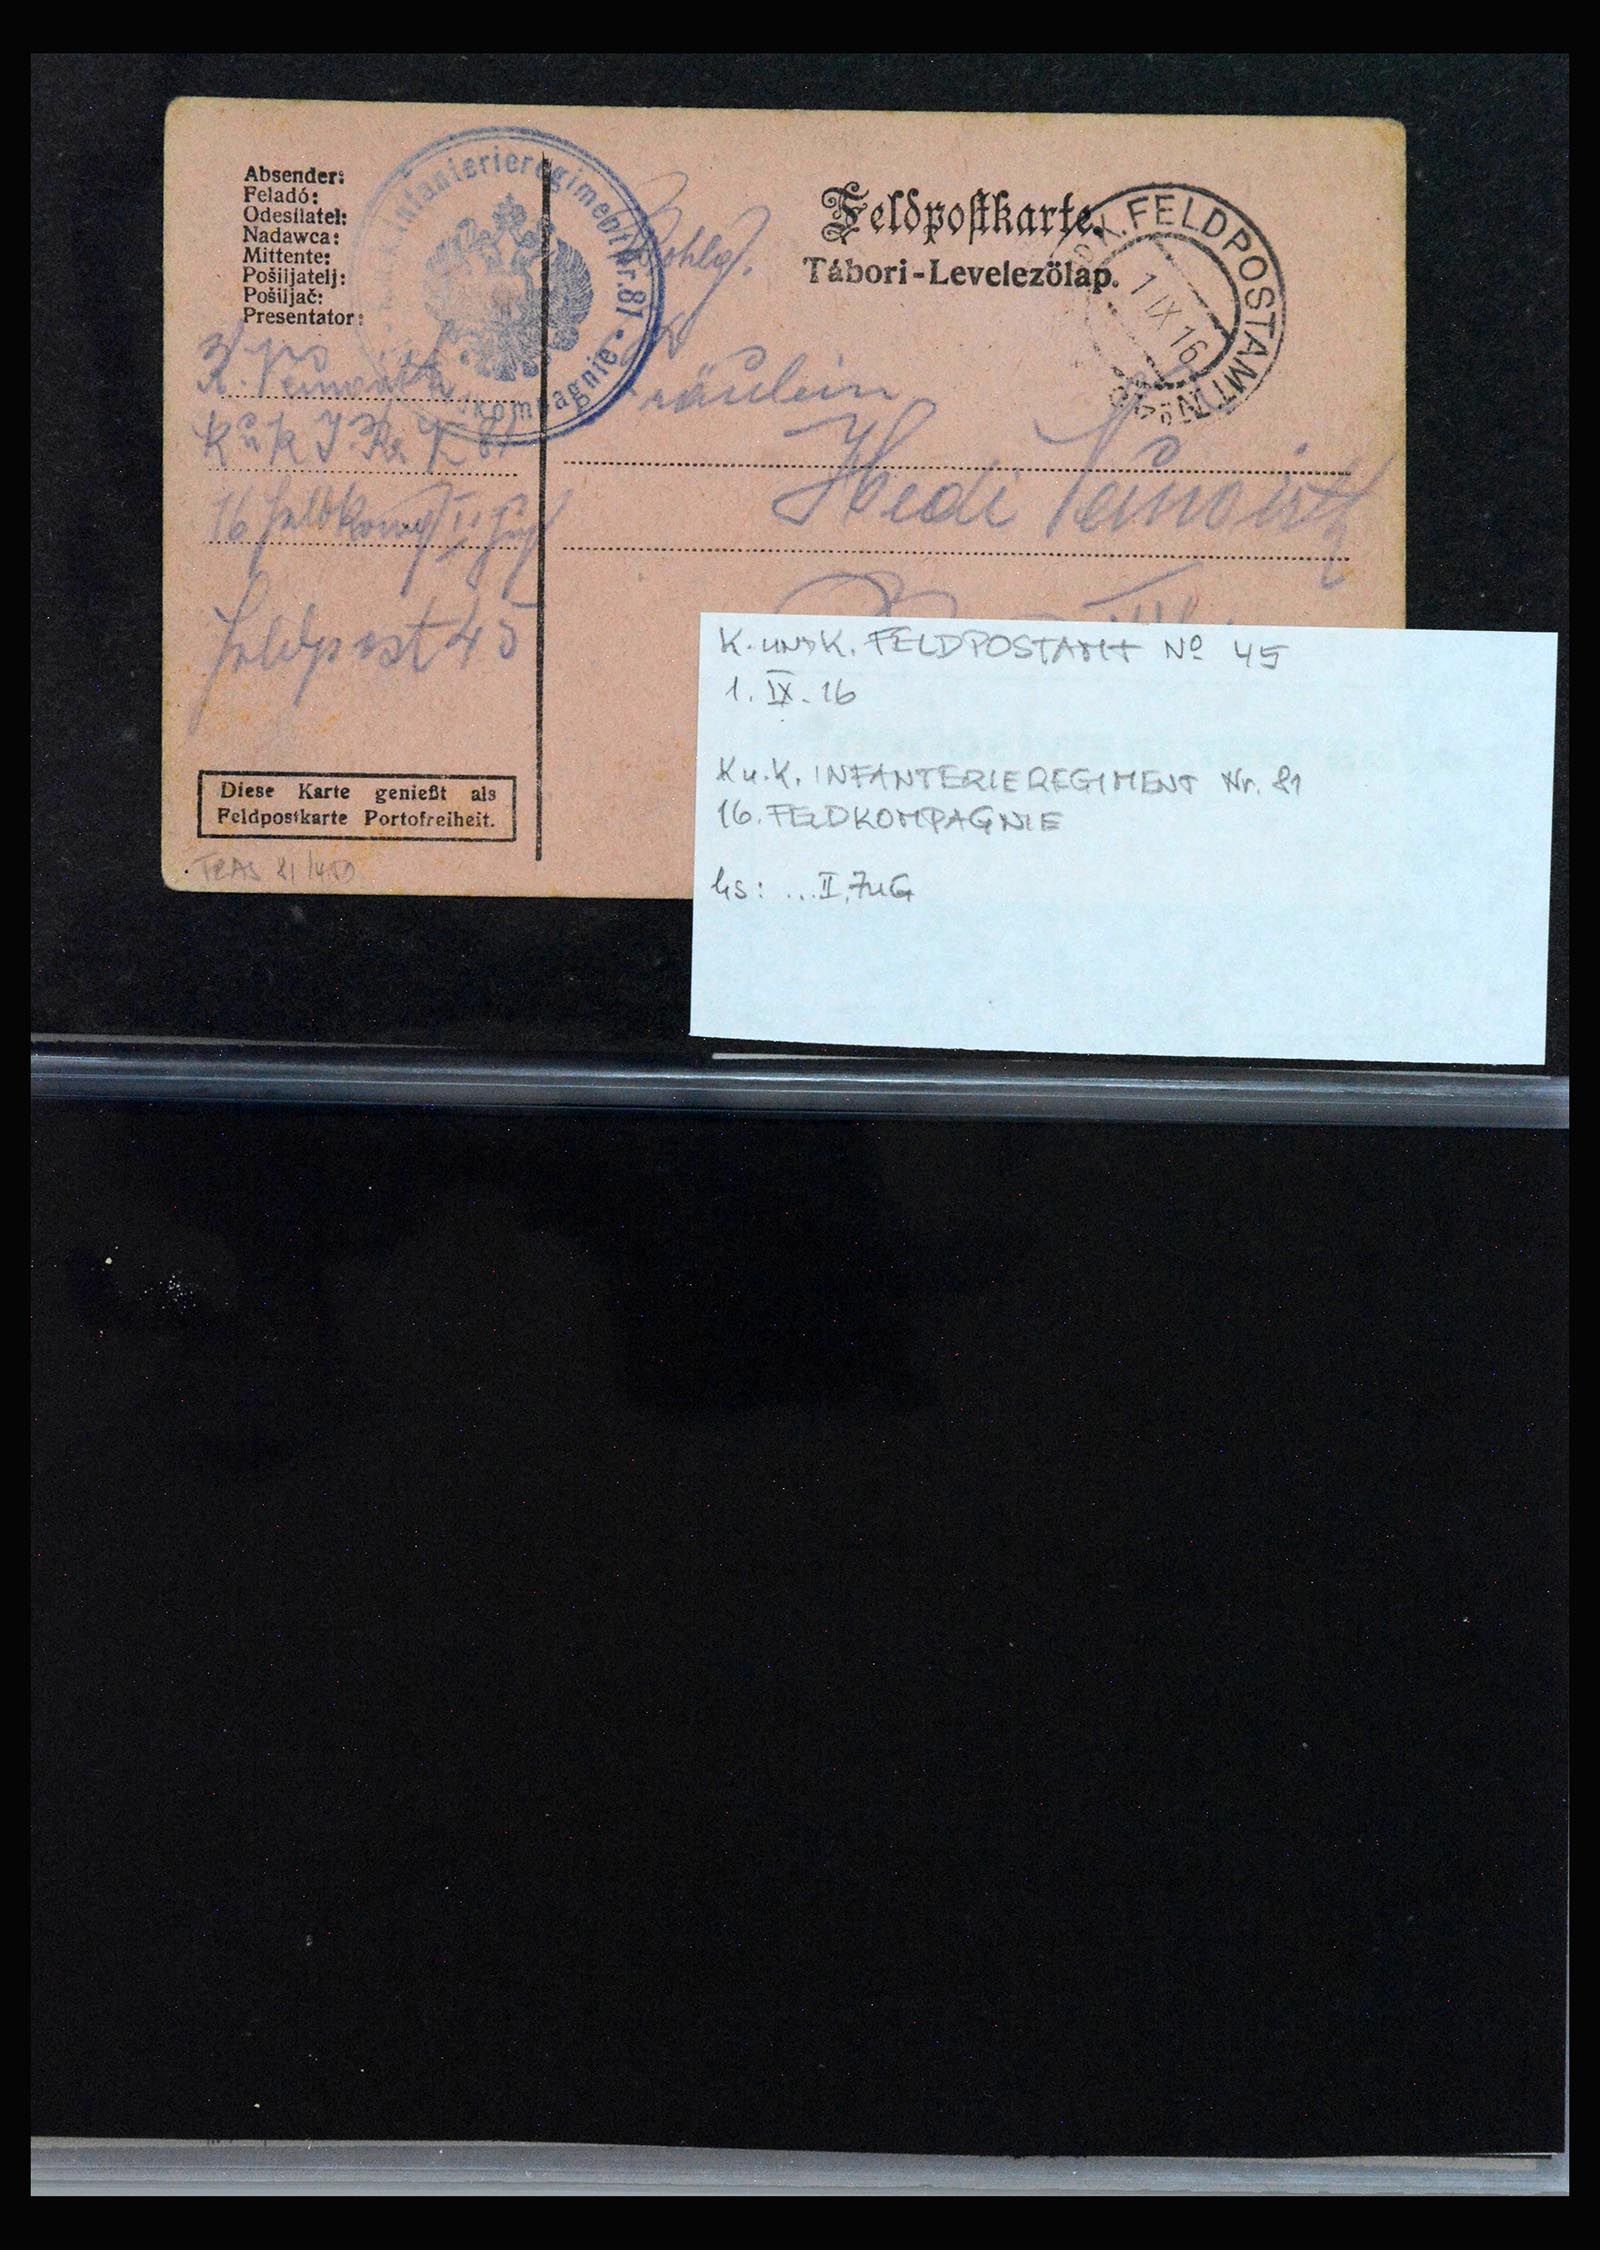 Absender:
Feladó:
Odesílatel:
Nadawca:
Mittente:
Pošiljatelj:
Pošiljač:
Presentator:
Infanterieregiment Nr. 81
kompagnie
Feldpostkarte.
Tábori-Levelezőlap.
K.FELDPOSTAMT
1 IX 16
K u K I. R. N 81
16 Feldkomp II Zug
Feldpost 45
Fräulein
Hedi
Diese Karte genießt als
Feldpostkarte Portofreiheit.
K. UND K. FELDPOSTAMT Nº 45
1. IX. 16
K u. K. INFANTERIEREGIMENT Nr. 81
16. FELDKOMPAGNIE
hs: ... II. ZUG